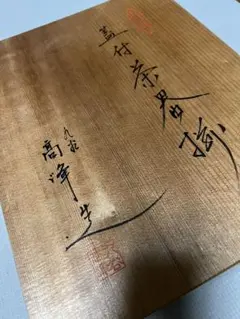 蓋付茶器揃
九谷
高峰造